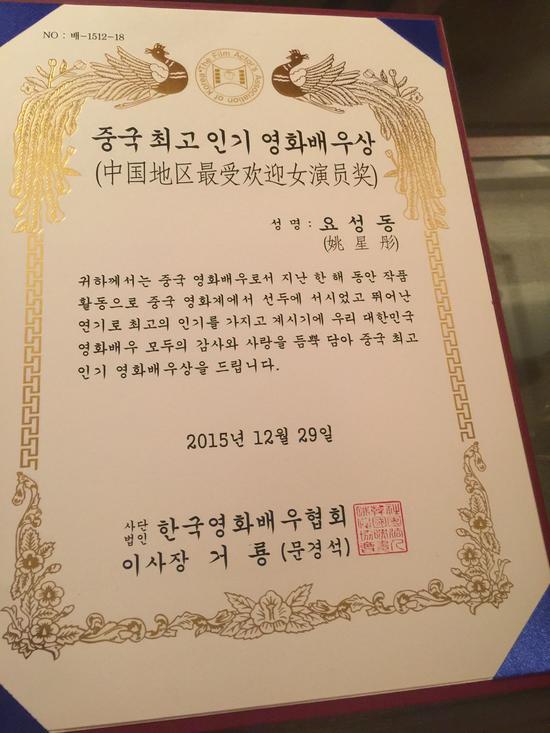 NO : 배-1512-18
The Film Actor's Association of Korea
중국 최고 인기 영화배우상
(中国地区最受欢迎女演员奖)
성 명 : 요 성 동
(姚 星 彤)
귀하께서는 중국 영화배우로서 지난 한 해 동안 작품
활동으로 중국 영화계에서 선두에 서시었고 뛰어난
연기로 최고의 인기를 가지고 계시기에 우리 대한민국
영화배우 모두의 감사와 사랑을 듬뿍 담아 중국 최고
인기 영화배우상을 드립니다.
2015년 12월 29일
사단법인 한국영화배우협회
이사장 거 룡 (문경석)